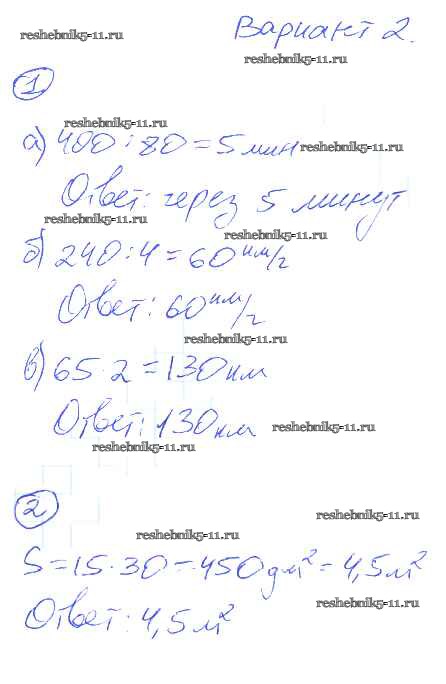 Вариант 2.
reshebnik5-11.ru
reshebnik5-11.ru
1
reshebnik5-11.ru
а) 400 : 80 = 5 мин reshebnik5-11.ru
Ответ: через 5 минут
reshebnik5-11.ru
reshebnik5-11.ru
б) 240 : 4 = 60 км/ч
Ответ: 60 км/ч
reshebnik5-11.ru
в) 65 · 2 = 130 км
Ответ: 130 км reshebnik5-11.ru
reshebnik5-11.ru
2
reshebnik5-11.ru
reshebnik5-11.ru
S = 15 · 30 = 450 дм² = 4,5 м²
reshebnik5-11.ru
Ответ: 4,5 м²